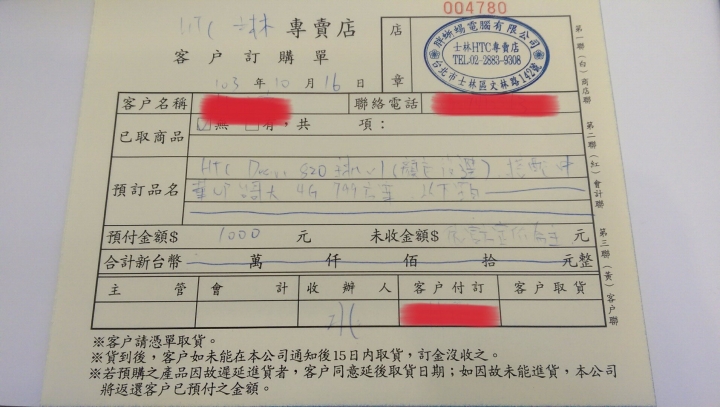 004780
HTC 士林 專賣店
客戶訂購單
103 年 10 月 16 日
店章
士林HTC專賣店
TEL:02-2883-9308
台北市士林區文林路142號
第一聯(白)商店聯
第二聯(紅)會計聯
第三聯(黃)客戶聯
客戶名稱 聯絡電話
已取商品 ☑無 □有,共 項:
預訂品名 HTC 820
4G
預付金額$ 1000 元 未收金額$ 元
合計新台幣 萬 仟 佰 拾 元整
主管 會計 收辦人 客戶付訂 客戶取貨
※客戶請憑單取貨。
※貨到後,客戶如未能在本公司通知後15日內取貨,訂金沒收之。
※若預購之產品因故遲延進貨者,客戶同意延後取貨日期;如因故未能進貨,本公司
將返還客戶已預付之金額。